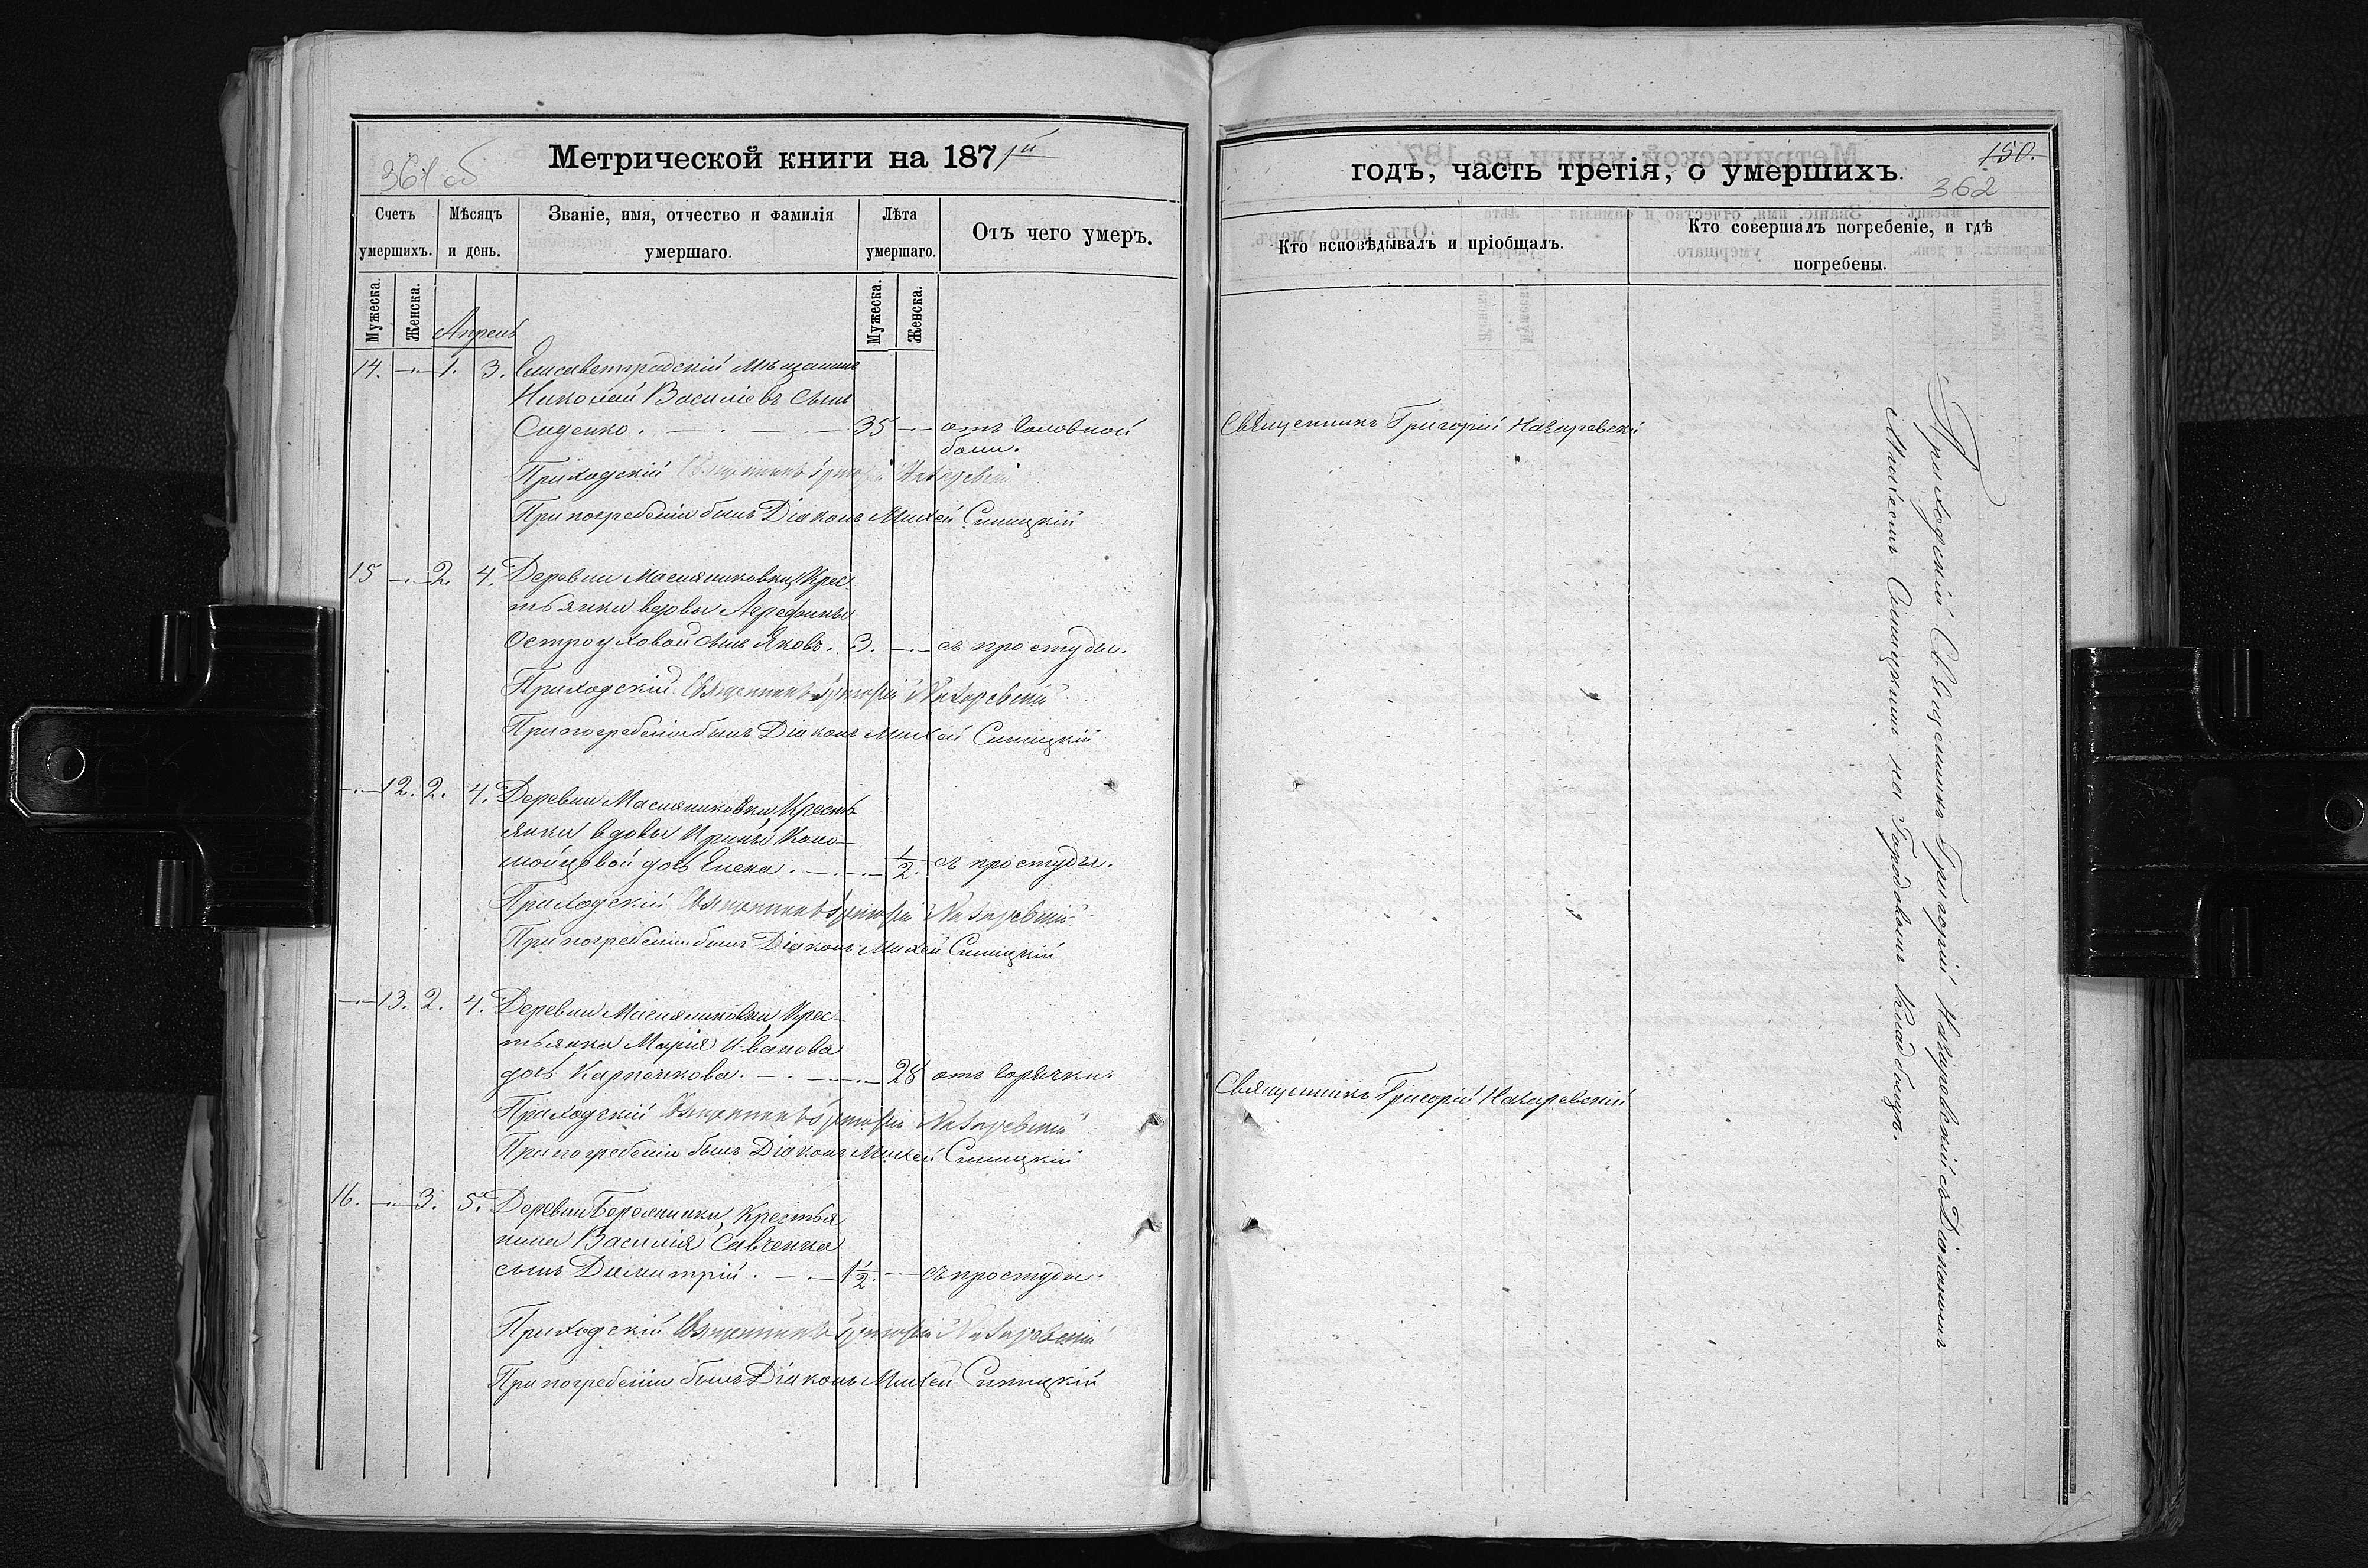 361 об
Метрической книги на 187 1й
Счетъ умершихъ.
Мѣсяцъ и день.
Званіе, имя, отчество и фамилія умершаго.
Лѣта умершаго.
Отъ чего умеръ.
Мужеска.
Женска.
Мужеска.
Женска.
Апрель
14. —·— 1. 3. Елисаветградскій мѣщанинъ
Николай Василіевъ сынъ
Сиденко. — . — . — 35 —·— отъ головной
боли.
Приходскій Священникъ Григорій Назаревскій
При погребеніи былъ Діаконъ Михей Синицкій
15 —·— 2 4. Деревни Масляниковки, Крес
тьянки вдовы Агрефины
Остроуховой сынъ Яковъ. 3. —·— съ простуды.
Приходскій Священникъ Григорій Назаревскій
При погребеніи былъ Діаконъ Михей Синицкій
—·— 12. 2. 4. Деревни Масляниковки, Кресть
янки вдовы Ирины Коло-
мойцовой дочь Елена. —·—·— 1/2. съ простуды.
Приходскій Священникъ Григорій Назаревскій
При погребеніи былъ Діаконъ Михей Синицкій
—·— 13. 2. 4. Деревни Масляниковки, Крес-
тьянка Марія Иванова
дочь Карпенкова. — . —·— 28 отъ горячки
Приходскій Священникъ Григорій Назаревскій
При погребеніи былъ Діаконъ Михей Синицкій
16. —·— 3. 5. Деревни, Крестья
нина Василія Савченка
сынъ Димитрій. — . — 1 1/2. — съ простуды.
Приходскій Священникъ Григорій Назаревскій
При погребеніи былъ Діаконъ Михей Синицкій
годъ, часть третія, о умершихъ.
150.
362
Кто исповѣдывалъ и пріобщалъ.
Кто совершалъ погребеніе, и гдѣ погребены.
Священникъ Григорій Назаревскій
Священникъ Григорій Назаревскій
Приходскій Священникъ Григорій Назаревскій съ Діакономъ
Михеемъ Синицкимъ на Городскомъ Кладбищѣ.